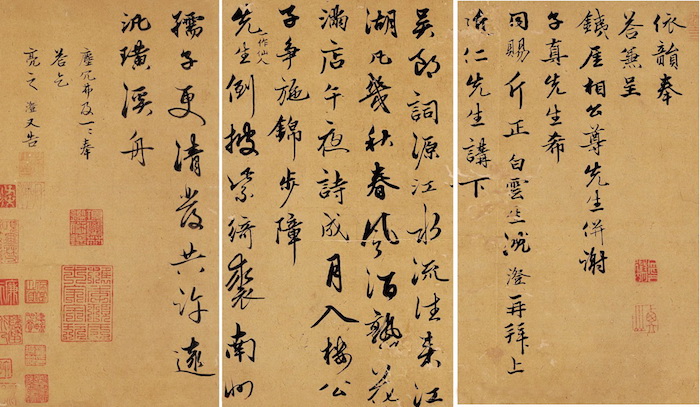 依韻奉
答兼呈
鐵厓相公尊先生併謝
子真先生希
同賜斤正白雲生澄再拜上
仁先生講下
吳郎詞源江水流往來江
湖凡幾秋春風酒熟花
滿店午夜詩成月入樓公
子爭施錦步障
一作仙人
先生倒披紫綺裘南州
孺子更清發共許遠
汎璜溪舟
塵冗弗及一一奉
答乞
亮之澄又告